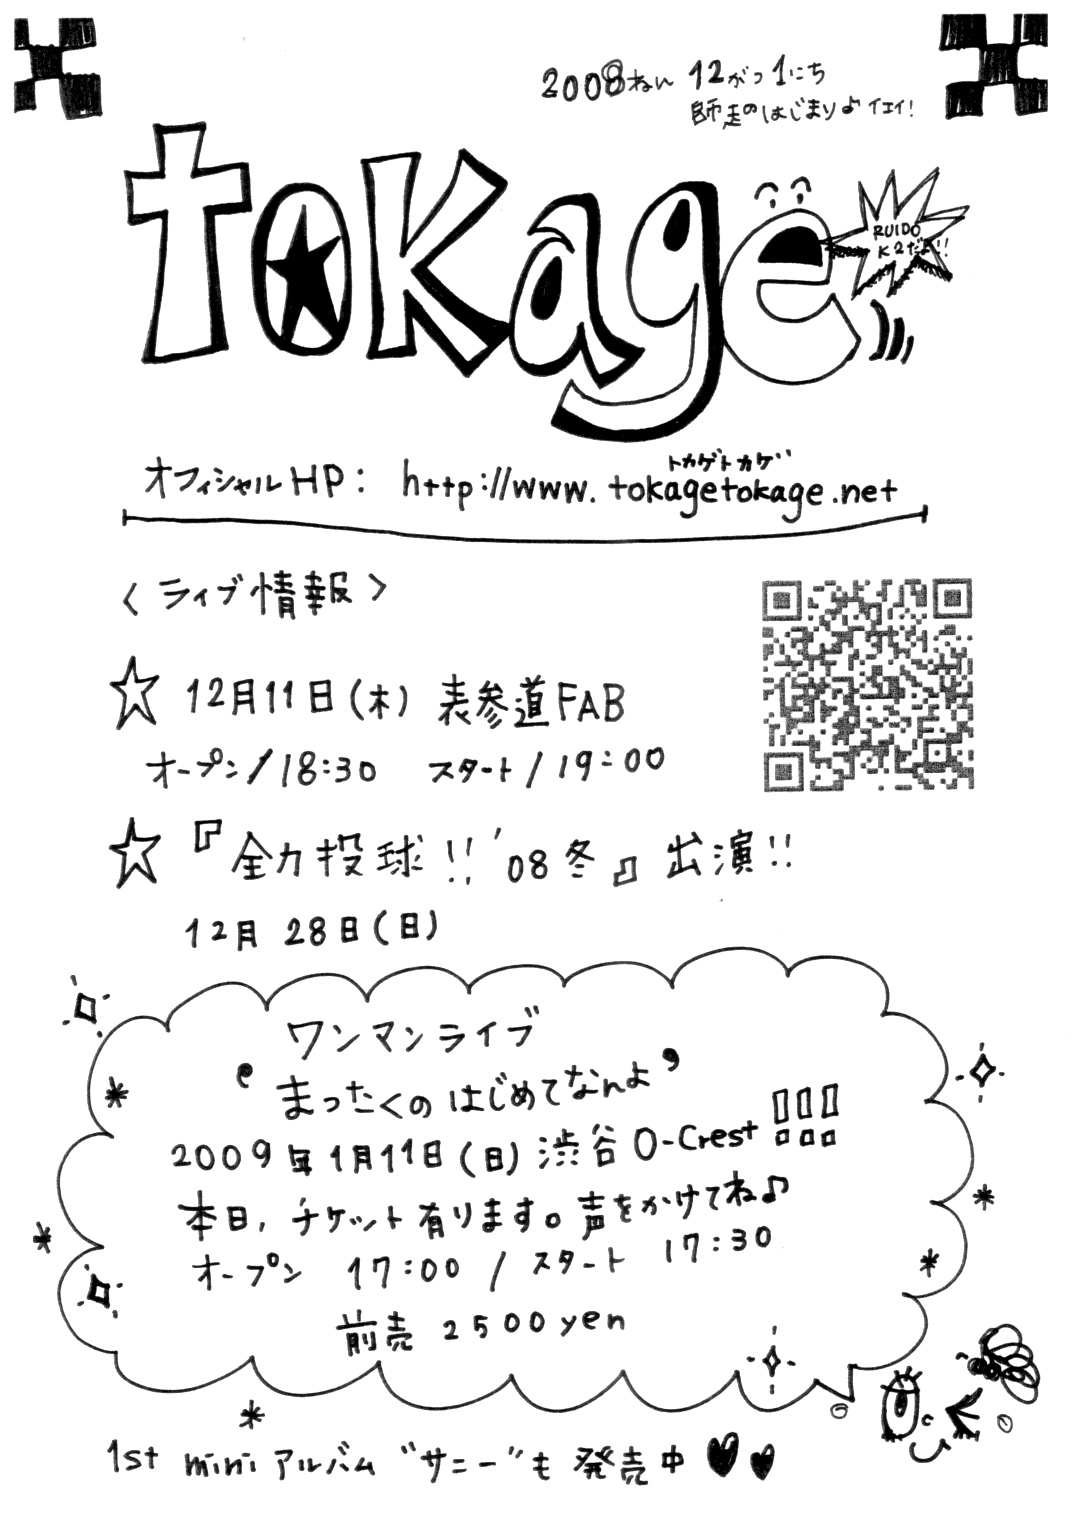 2008ねん 12がつ1にち
師走のはじまりよ♪ イエイ!
tokage
RUIDO
K2だよ!!
トカゲトカゲ
オフィシャルHP: http://www.tokagetokage.net
〈ライブ情報〉
☆ 12月11日(木) 表参道FAB
オープン/18:30 スタート/19:00
☆ 『全力投球!!'08冬』出演!!
12月28日(日)
ワンマンライブ
‘まったくのはじめてなんよ’
2009年1月11日(日)渋谷O-Crest!!!
本日、チケット有ります。声をかけてね♪
オープン 17:00 / スタート 17:30
前売 2500yen
1st miniアルバム"サニー"も発売中♥♥